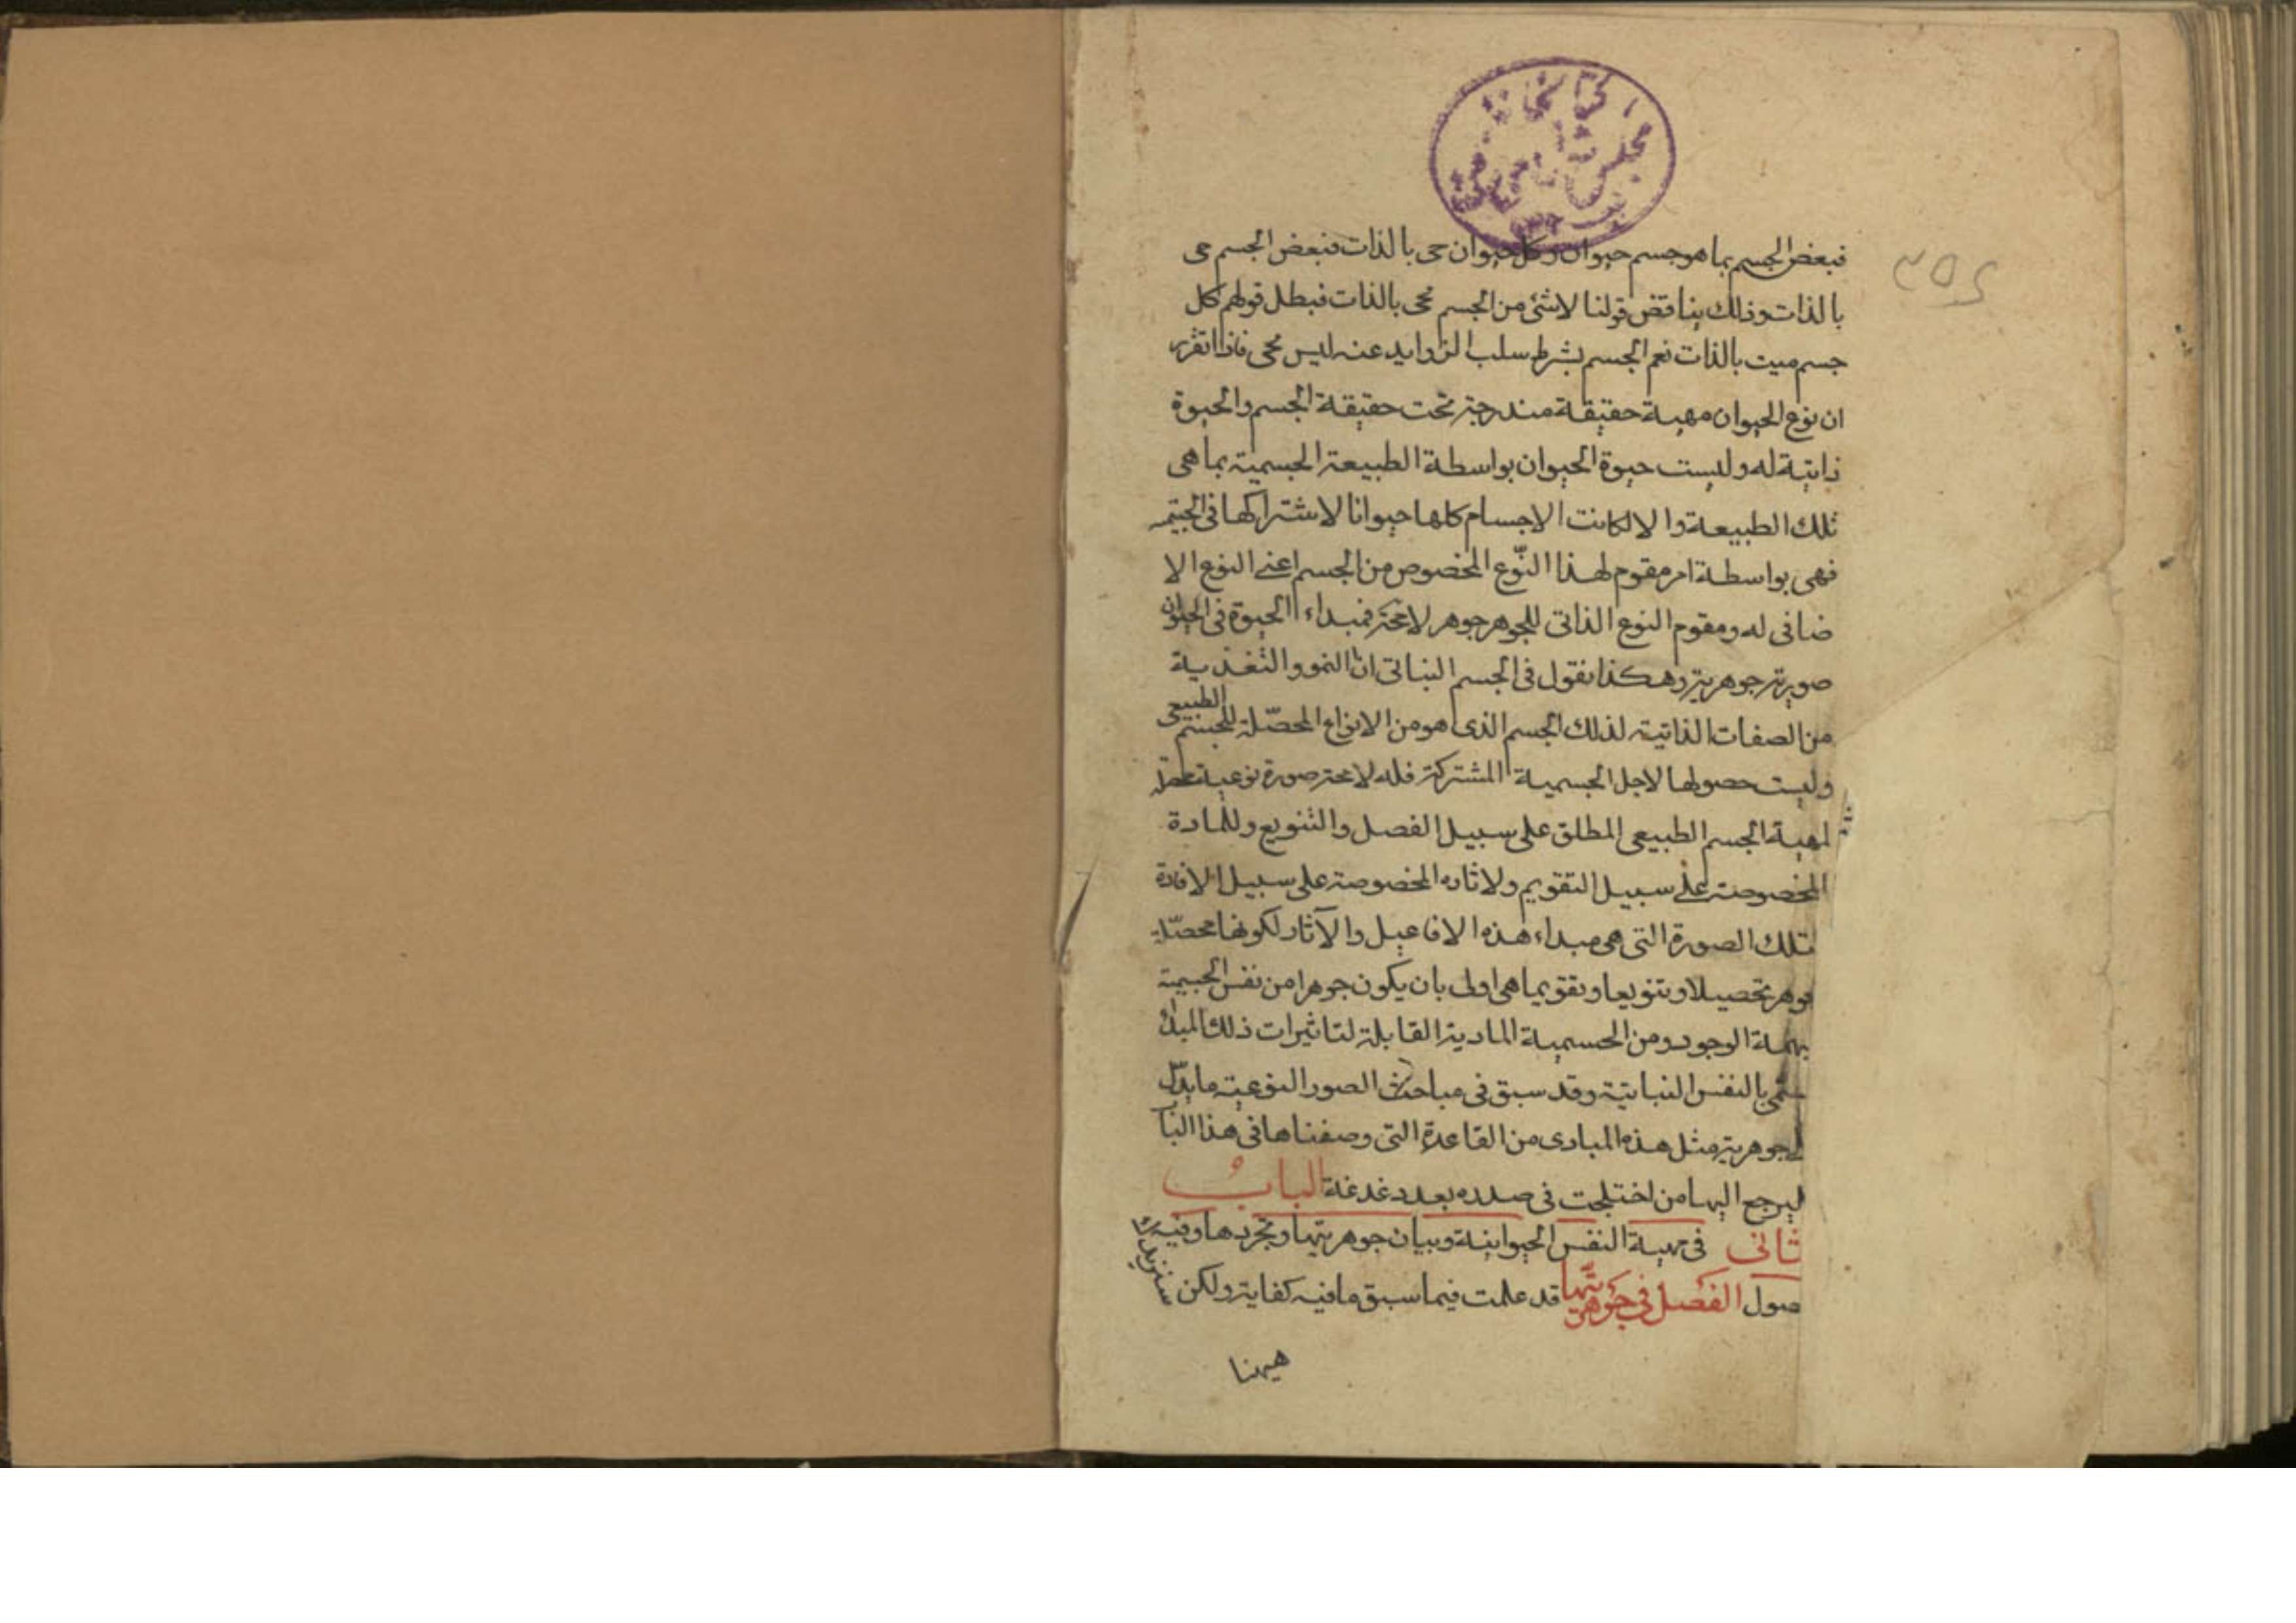 فبعض الجسم بما هو جسم حيوان وكل حيوان حى بالذات فبعض الجسم حى
بالذات وذلك يناقض قولنا لاشئ من الجسم بحى بالذات فبطل قولهم كل
جسم ميت بالذات نعم الجسم بشرط سلب الزوايد عنه ليس بحى فاذا تقرر
ان نوع الحيوان مهية حقيقة مندرجة تحت حقيقة الجسم والحيوة
ذاتية له وليست حيوة الحيوان بواسطة الطبيعة الجسمية بما هى
تلك الطبيعة والا لكانت الاجسام كلها حيوانا لاشتراكها فى الجسمية
فهى بواسطة امر مقوم لهذا النّوع المخصوص من الجسم اعنى النوع الا
ضافى له ومقوم النوع الذاتى للجوهر جوهر لا محة فمبداء الحيوة فى الحيوان
صورة جوهرية وهكذا نقول فى الجسم النباتى ان النمو والتغذية
من الصفات الذاتية لذلك الجسم الذى هو من الانواع المحصّلة للجسم الطبيعى
وليست حصولها لاجل الجسمية المشتركة فله لا محة صورة نوعية محصلة
لمهية الجسم الطبيعى المطلق على سبيل الفصل والتنويع وللمادة
المخصوصة على سبيل التقويم ولاثاره المخصوصة على سبيل الافادة
فتلك الصورة التى هى مبداء هذه الافاعيل والآثار لكونها محصّلة
جوهر تحصيلا وتنويعا وتقويما هى اولى بان يكون جوهرا من نفس الجسمية
بهمة الوجود ومن الجسمية المادية القابلة لتاثيرات ذلك المبدء
سمى بالنفس النباتية وقد سبق فى مباحث الصور النوعية ما يدلّ
لجوهرية مثل هذه المبادى من القاعدة التى وصفناها فى هذا البا
ليرجع اليها من اختلجت فى صدره بعد دغدغة الباب
ثانى فى مهية النفس الحيوانية وبيان جوهريتها وتجردها وفيه
صول الفصل فى جوهريتها قد علمت فيما سبق ما فيه كفاية ولكن سنزيدك
هيهنا